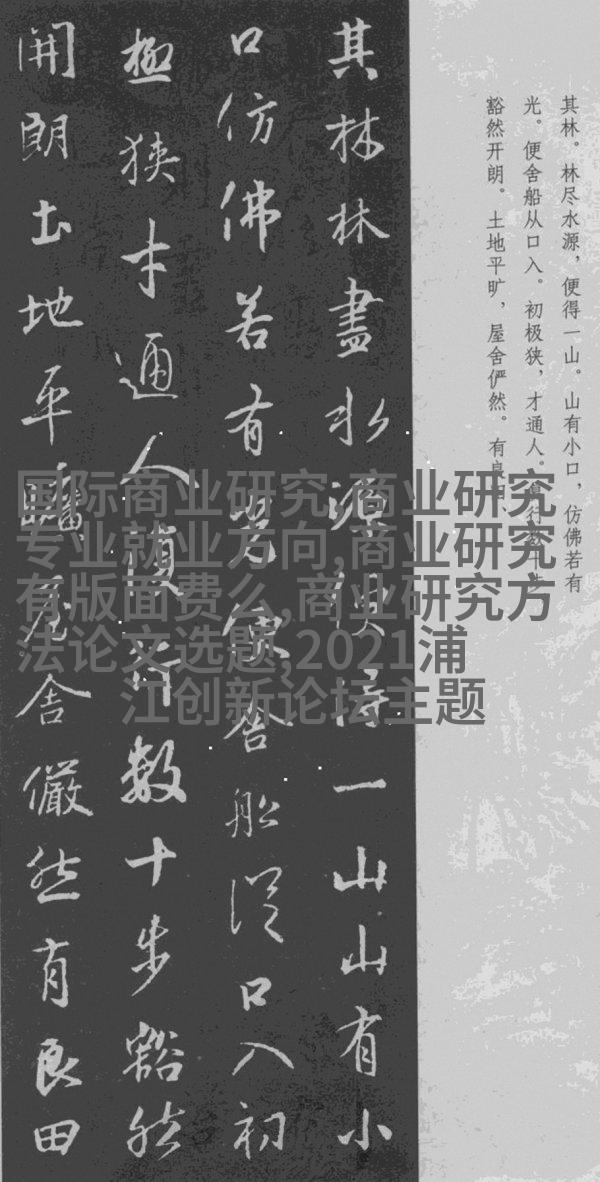 其林。林尽水源，便得一山。山有小口，仿佛若有
光。便舍船从口入。初极狭，才通人。复行数十步
豁然开朗。土地平旷，屋舍俨然。有良田、
其林林盡水源便得一山山有小
口仿佛若有光便舍船從口入初
極狹才通人復行數十步豁然
開朗土地平曠屋舍儼然有良田
国际商业研究,商业研究
专业就业方向,商业研究
有版面费么,商业研究方
法论文选题,2021浦
江创新论坛主题